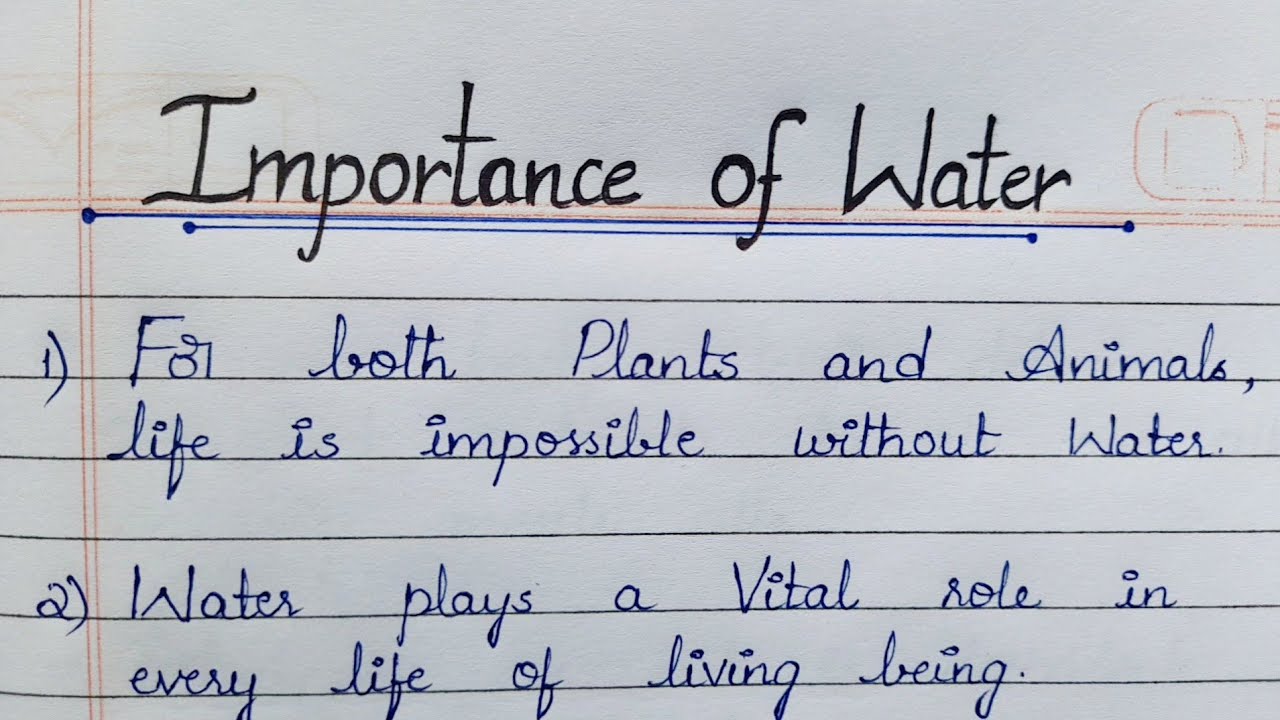 Importance of Water
1) For both Plants and Animals,
life is impossible without Water.
2) Water plays a Vital role in
every life of living being.